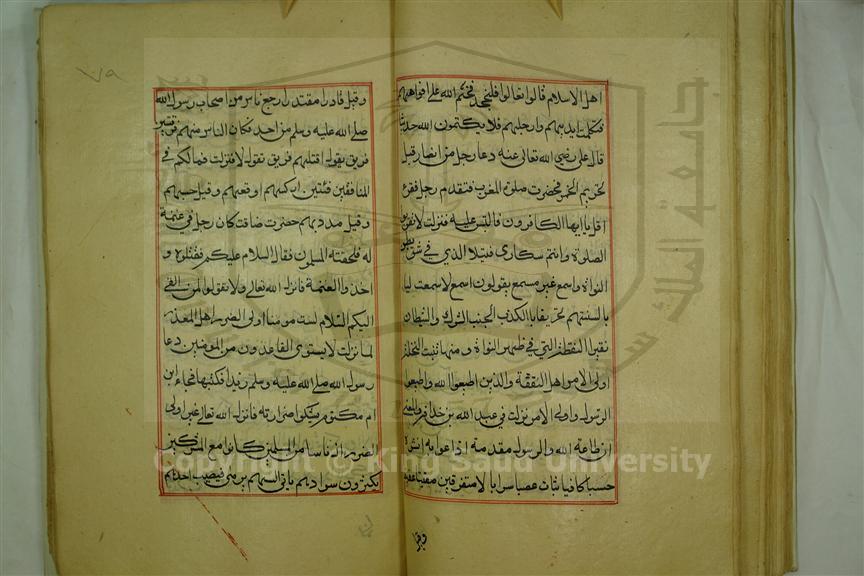 اهل الاسلام قالوا تعالوا فلنجحد فختم الله على افواههم
فتتكلم ايديهم وارجلهم فلا يكتمون الله حديثا
قال على رضي الله تعالى عنه دعا رجل من انصار قبل
تحريم الخمر فحضرت صلوة المغرب فتقدم رجل فقرء
قل يا ايها الكافرون فالتبس عليه فنزلت لا تقربوا
الصلوة وانتم سكارى فتيلا الذي في شق بطن
النواة واسمع غير مسمع يقولون اسمع لا سمعت ليا
بالسنتهم تحريفا بالكذب الجبت الشرك والشيطان
نقيرا النقطة التي في ظهر النواة و منها تنبت النخلة
اولى الامر اهل الفقه والدين اطيعوا الله واطيعوا
الرسول واولى الامر نزلت في عبد الله بن حذافر والمعنى
ان طاعة الله والرسول مقدمة اذا عوا به افشوه
حسيبا كافيا ثبات عصبا سرايا لا متفرقين مقيتا حفيظا
وقيل
وقيل قادرا مقتدرا رجع ناس من اصحاب رسول الله
صلى الله عليه وسلم من احد فكان الناس منهم فرقتين
فريق يقول اقتلهم فريق تقول لا فنزلت فمالكم في
المنافقين فئتين اركسهم اوقعهم وقيل حبسهم
وقيل بددهم حصرت ضاقت كان رجل في غنيمة
له فلحقته المسلمون فقال السلام عليكم فقتلوه و
اخذوا الغنيمة فانزل الله تعالى ولا تقولوا لمن القى
اليكم السلام لست مومنا اولى الضرر اهل العذر
لما نزلت لا يستوى القاعدون من المومنين دعا
رسول الله صلى الله عليه وسلم زيدا فكتبها فجاء ابن
ام مكتوم يشكوا ضرارته فانزل الله تعالى غير اولى
الضرر ان ناسا من المسلمين كانوا مع المشركين
يكثرون سوادهم ياتى السهم يرمى فيصيب احدهم
٧٩
جامعة الملك سعود
Copyright © King Saud University